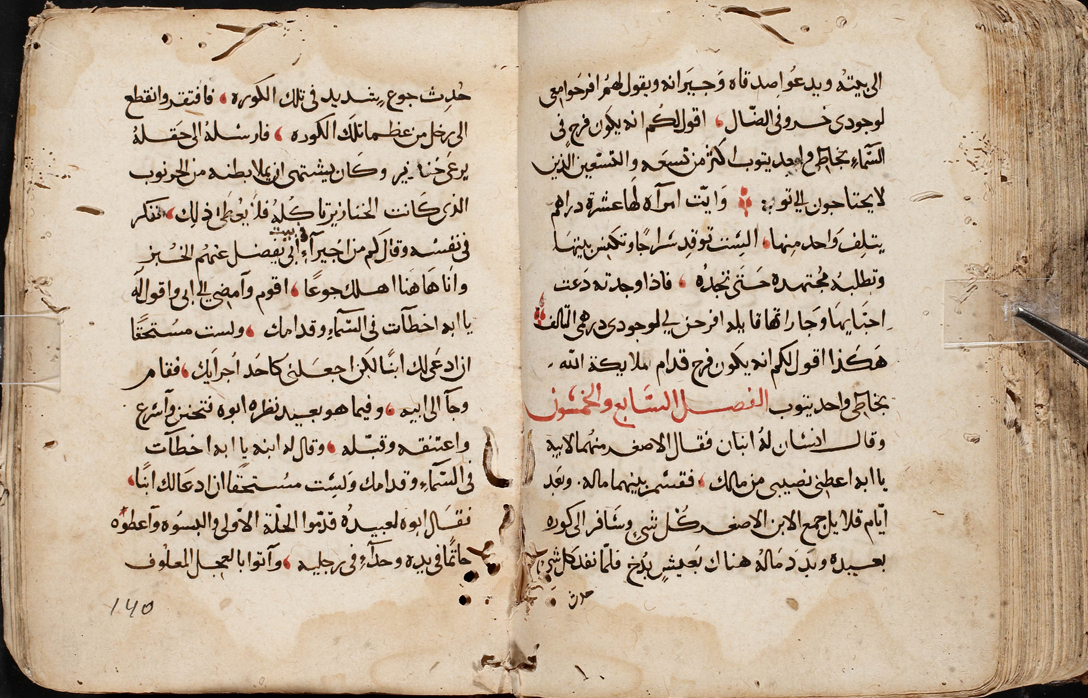 الى بيته ويدعوا اصدقاه وجيرانه ويقول لهم افرحوا معي
لوجودي خروفي الضال، اقول لكم انه يكون فرح في
السماء بخاطي واحد يتوب اكثر من تسعه والتسعين الذين
لا يحتاجون الي توبه وايت امرآه لها عشرة دراهم
يتلف واحد منها، اليست توقد سراجا وتكنس بيتها
وتطلبه مجتهده حتى تجده، فاذا وجدته دعت
احبايها وجاراتها قايله افرحن لي لوجودي درهمي التالف
هكذا اقول لكم انه يكون فرح قدام ملايكة الله
بخاطي واحد يتوب الفصل السابع والخمسون
وقال انسان له ابنان فقال الاصغر منهما لابيه
يا ابه اعطني نصيبي من مالك، فقسم بينهما ماله. وبعد
ايام قلايل جمع الابن الاصغر كل شي وسافر الى كوره
بعيده وبدد ماله هناك بعيش بذخ فلما نفد كل شي
حدث
حدث جوع شديد في تلك الكوره، فافتقر وانقطع
الى رجل من عظما تلك الكوره، فارسله الى حقله
يرعى خنازير وكان يشتهي ان يملا بطنه من الخرنوب
الذي كانت الخنازير تاكله فلا يعطى ذلك، ففكر
في نفسه وقال كم من اجيرآء في بيت ابي يفضل عنهم الخبز
وانا هاهنا اهلك جوعا، اقوم وامضي الي ابي واقول له
يا ابه اخطات في السماء وقدامك، ولست مستحقا
ان ادعى لك ابنا لكن اجعلني كاحد اجرايك، فقام
وجآ الى ابيه، وفيما هو بعيد نظره ابوه فتحنن واسرع
واعتنقه وقبله، وقال له ابنه يا ابه اخطات
في السماء وقدامك ولست مستحقا ان ادعا لك ابنا،
فقال ابوه لعبيده قدموا الحلة الاولى والبسوه واعطوه
خاتما في يده وحذآء في رجليه، وآتوا بالعجل المعلوف
140